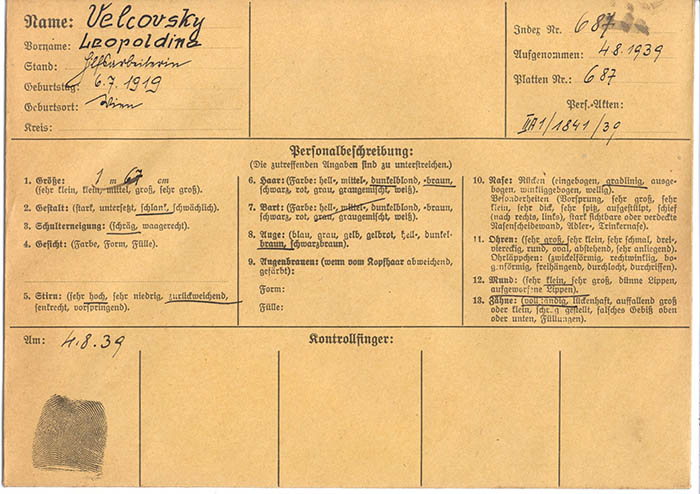 Name: Velcovsky
Vorname: Leopoldine
Stand: Hilfsarbeiterin
Geburtstag: 6.7.1919
Geburtsort: Wien
Kreis:
Index Nr. 687
Aufgenommen: 4.8.1939
Platten Nr.: 687
Pers.-Akten:
IIA1/1841/39
Personalbeschreibung:
(Die zutreffenden Angaben sind zu unterstreichen.)
1. Größe: 1 m 67 cm
(sehr klein, klein, mittel, groß, sehr groß).
2. Gestalt: (stark, untersetzt, schlank, schwächlich).
3. Schulterneigung: (schräg, waagerecht).
4. Gesicht: (Farbe, Form, Fülle).
5. Stirn: (sehr hoch, sehr niedrig, zurückweichend,
senkrecht, vorspringend).
6. Haar: (Farbe: hell-, mittel-, dunkelblond, -braun,
schwarz, rot, grau, graugemischt, weiß).
7. Bart: (Farbe: hell-, mittel-, dunkelblond, -braun,
schwarz, rot, grau, graugemischt, weiß).
8. Auge: (blau, grau, gelb, gelbrot, hell-, dunkel-
braun, schwarzbraun).
9. Augenbrauen: (wenn vom Kopfhaar abweichend,
gefärbt):
Form:
Fülle:
10. Nase: Rücken (eingebogen, gradlinig, ausge-
bogen, winkliggebogen, wellig).
Besonderheiten (Vorsprung, sehr groß, sehr
klein, sehr dick, sehr spitz, aufgestülpt, schief
(nach rechts, links), stark sichtbare oder verdeckte
Nasenscheidewand, Adler-, Trinkernase).
11. Ohren: (sehr groß, sehr klein, sehr schmal, drei-,
viereckig, rund, oval, abstehend, sehr anliegend).
Ohrläppchen: (zwickelförmig, rechtwinklig, bo-
genförmig, freihängend, durchlocht, durchrissen).
12. Mund: (sehr klein, sehr groß, dünne Lippen,
aufgeworfene Lippen).
13. Zähne: (vollständig, lückenhaft, auffallend groß
oder klein, schräg gestellt, falsches Gebiß oben
oder unten, Füllungen).
Am: 4.8.39
Kontrollfinger: